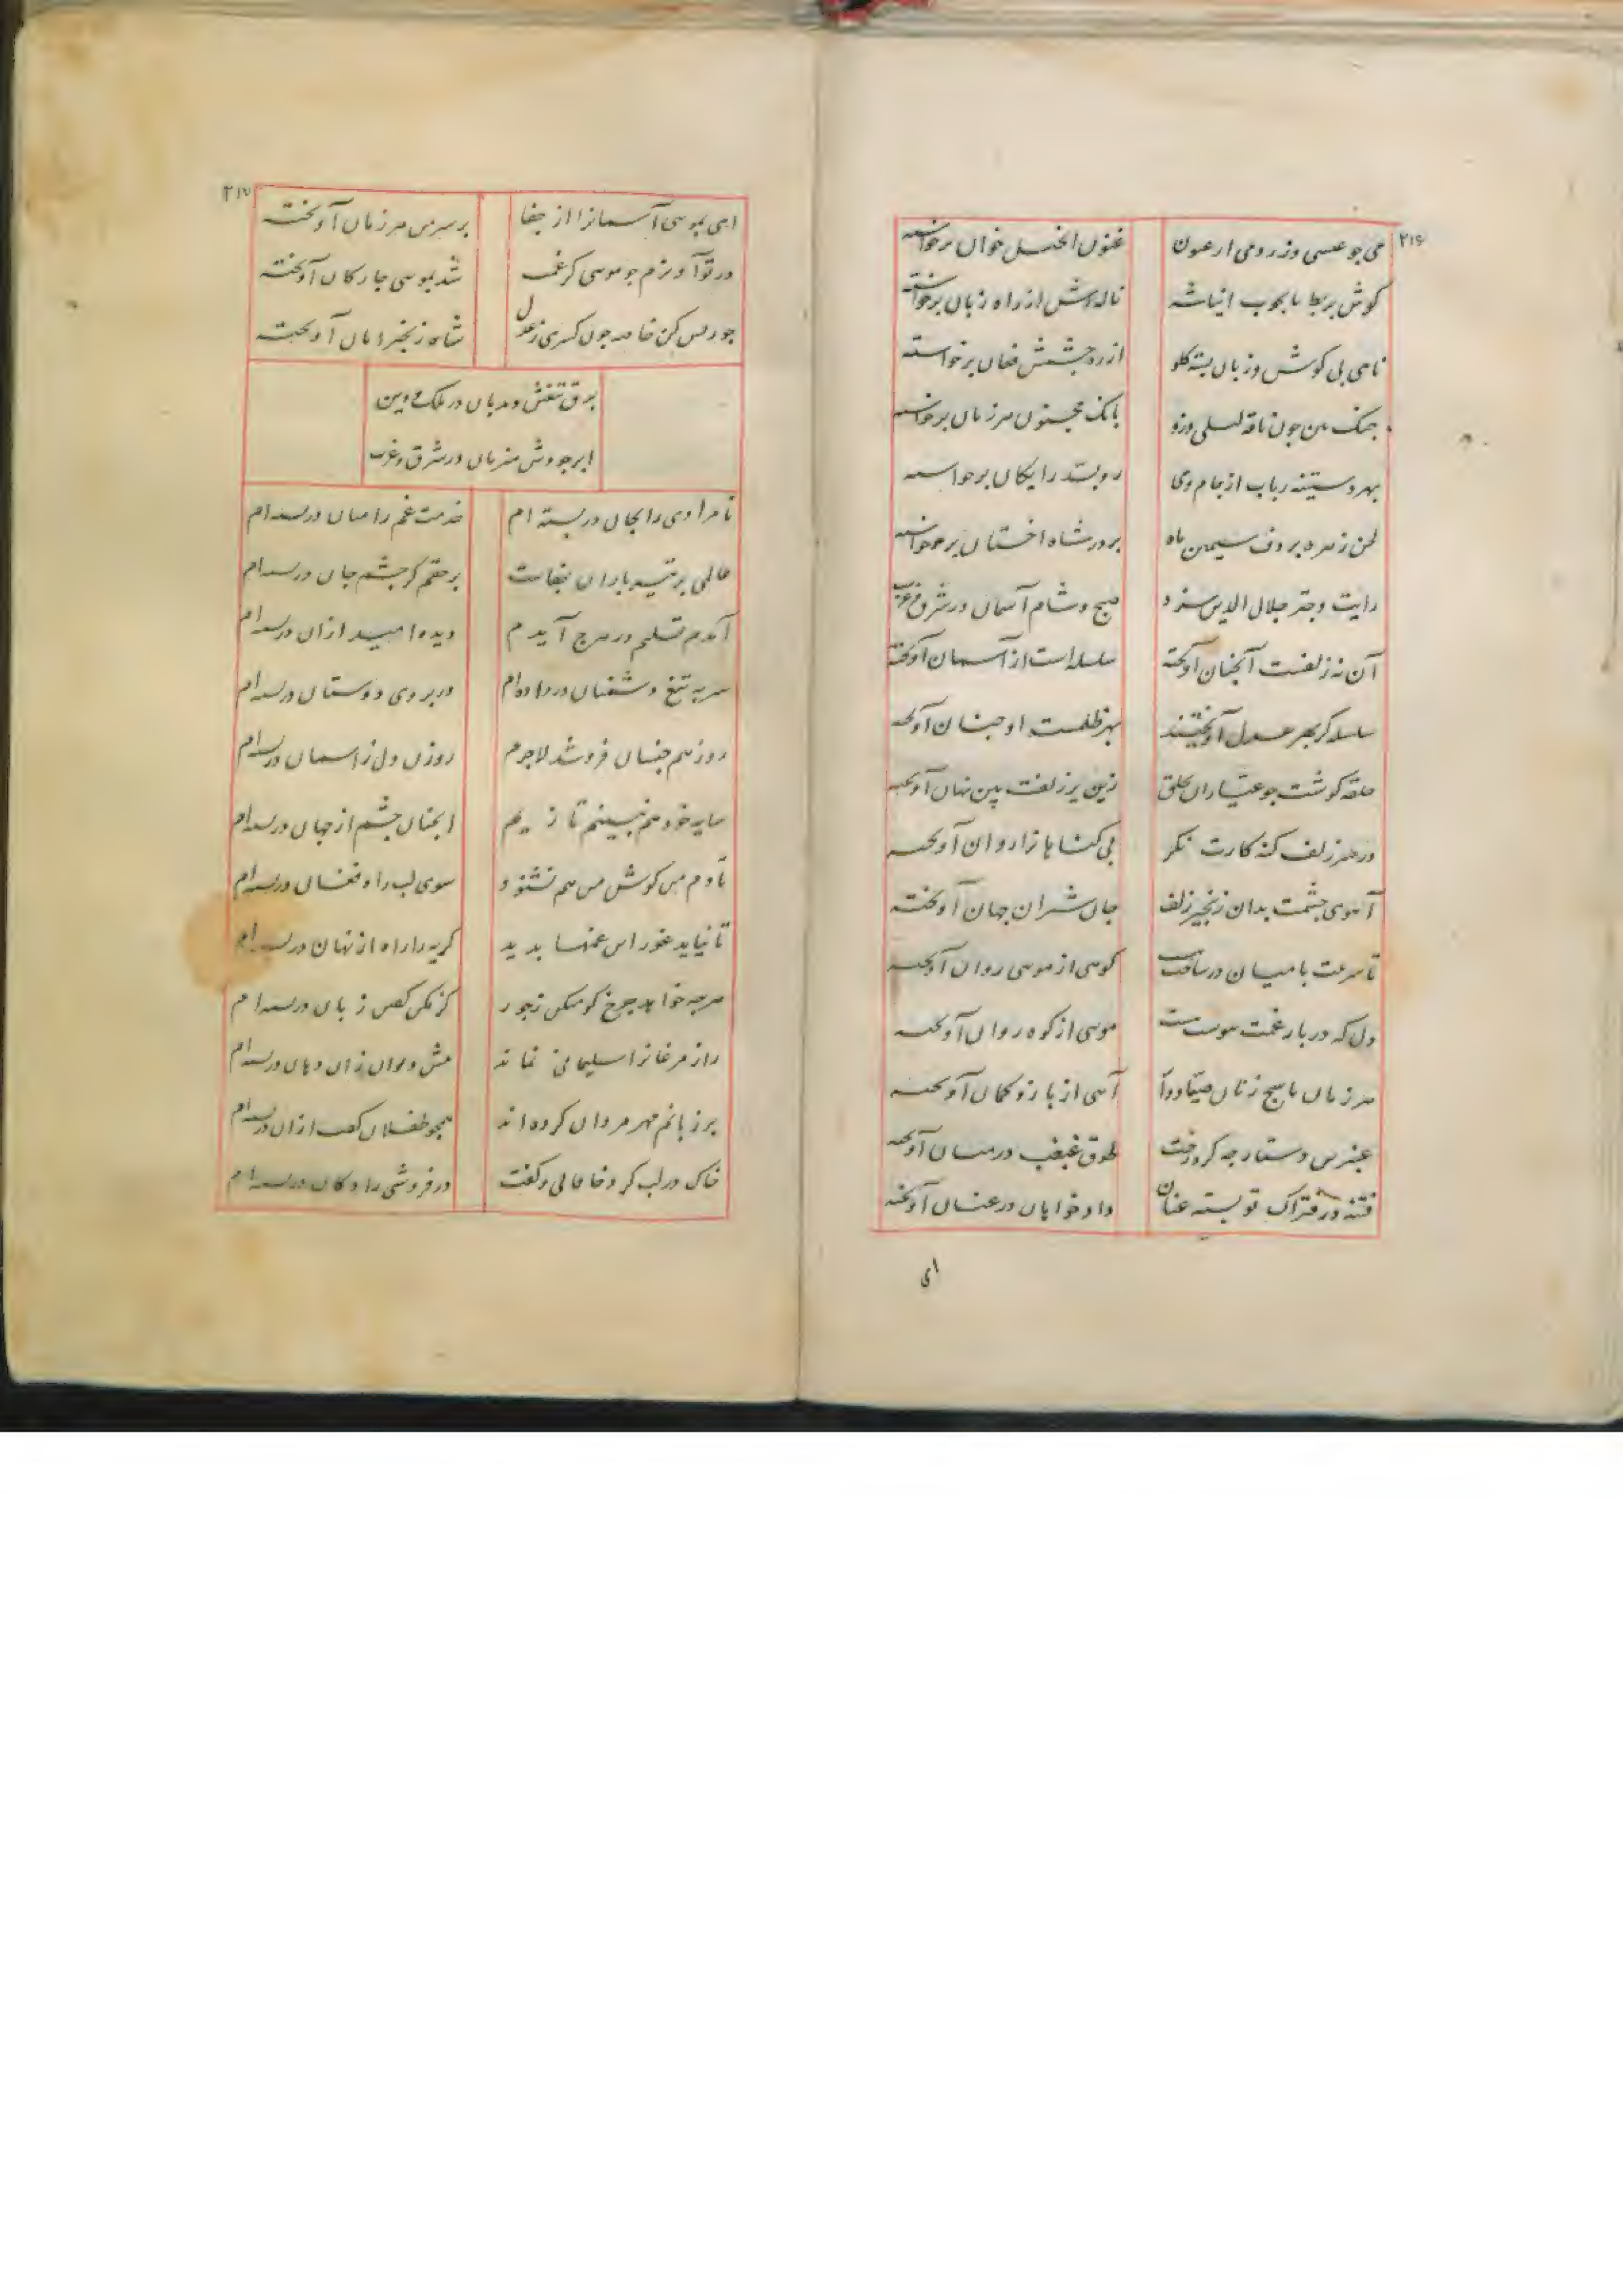 ۲۱۶
می چو عیسی وز رومی ارغنون غنون انجیل خوان برخواسته
گوش بربط تا بچوب انباشته ناله‌اش از راه زبان برخواسته
نای بی گوش و زبان بسته گلو از ره چشمش فغان برخواسته
چنگ بین چون ناقه لیلی وزو بانگ مجنون هر زمان برخواسته
بهر دستینه رباب از جام می رو بسد رایگان برخواسته
لحن زهره بر دف سیمین ماه بر در شاه اخستان برخواسته
رایت و چتر جلال الدین سزد صبح و شام آسمان در شرق و غرب
آن نه زلفست آنچنان آویخته سلسله است از آسمان آویخته
سلسله کز بهر عدل آویختند بهر ظلمست او چنان آویخته
حلقه گوشت چو عیاران بحلق زین بر زلفت بین نهان آویخته
در هر زلف کنه کارت نگر بی گناها نرا روان آویخته
آهوی چشمت بدان زنجیر زلف جان شیران جهان آویخته
تا سرعت با میان درساخت کوهی از موی روان آویخته
دل که در بار غمت پیوست موی از کوه روان آویخته
هر زمان یاسج زنان صیادوار آیی از بازو کمان آویخته
عنبرین دستارچه کرد رخت طوق غبغب در میان آویخته
فتنه در فتراک تو بسته عنان دادخواهان در عنان آویخته
ای
۲۱۷
ای بموی آسمانرا از جفا بر سر من هر زمان آویخته
در تو آویزم چو موی کز غمت شد بموی جان کان آویخته
جور بس کن خاصه چون کسری ز عدل شاه زنجیر امان آویخته
برق تیغش دیدبان در ملک و دین
ابر جودش میزبان در شرق و غرب
نامرادی را بجان دربسته‌ام خدمت غم را میان دربسته‌ام
عالمی پر تیر باران جفاست بر حقم گر چشم جان دربسته‌ام
آمدم تسلیم در هرچ آیدم دیده امید از آن دربسته‌ام
سر به تیغ دشمنان درداده‌ام در بروی دوستان دربسته‌ام
روز هم جنسان فروشد لاجرم روزن دل ز آسمان دربسته‌ام
سایه خود هم نبینم تا زیم آنچنان چشم از جهان دربسته‌ام
تا دم من گوش من هم نشنود سوی لب راه فغان دربسته‌ام
تا نیاید غور این غمها پدید گریه را راه از نهان دربسته‌ام
هرچه خواهد چرخ گو میکن ز جور کز مکن گفتن زبان دربسته‌ام
راز مرغانرا سلیمانی نماند پیش دیوان زان دهان دربسته‌ام
بر زبانم مهر مردان کرده‌اند همچو طفلان لب از آن دربسته‌ام
خاک در لب کرد خاقانی و گفت در فروشی را دکان دربسته‌ام